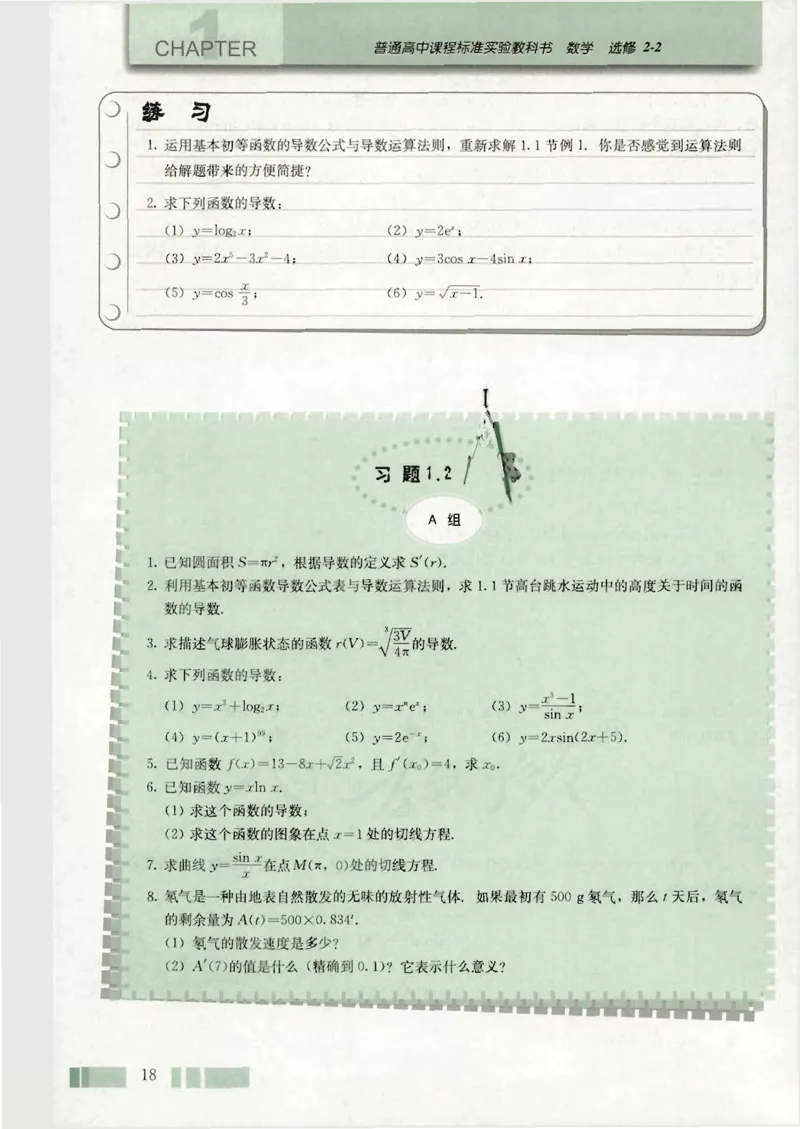 1
CHAPTER
普通高中课程标准实验教科书 数学 选修 2-2
练 习
1. 运用基本初等函数的导数公式与导数运算法则，重新求解 1.1 节例 1. 你是否感觉到运算法则
给解题带来的方便简捷?
2. 求下列函数的导数:
(1) y=log₂x; (2) y=2eˣ;
(3) y=2x⁵-3x²-4; (4) y=3cos x-4sin x;
(5) y=cos x/3; (6) y=√(x-1).
习 题1.2
A 组
1. 已知圆面积 S=πr²，根据导数的定义求 S′(r).
2. 利用基本初等函数导数公式表与导数运算法则，求 1.1 节高台跳水运动中的高度关于时间的函
数的导数.
3. 求描述气球膨胀状态的函数 r(V)=∛(3V/4π)的导数.
4. 求下列函数的导数:
(1) y=x³+log₂x; (2) y=xⁿeˣ; (3) y=(x³-1)/sin x;
(4) y=(x+1)⁹⁹; (5) y=2e⁻ˣ; (6) y=2xsin(2x+5).
5. 已知函数 f(x)=13-8x+√2x²，且 f′(x₀)=4，求 x₀.
6. 已知函数 y=xln x.
(1) 求这个函数的导数;
(2) 求这个函数的图象在点 x=1 处的切线方程.
7. 求曲线 y=sin x/x在点 M(π，0)处的切线方程.
8. 氡气是一种由地表自然散发的无味的放射性气体. 如果最初有 500 g 氡气，那么 t 天后，氡气
的剩余量为 A(t)=500×0.834ᵗ.
(1) 氡气的散发速度是多少?
(2) A′(7)的值是什么（精确到 0.1）? 它表示什么意义?
18